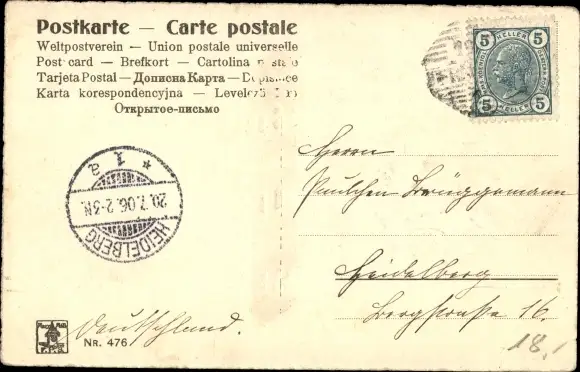 Postkarte — Carte postale
Weltpostverein — Union postale universelle
Post card — Brefkort — Cartolina
Tarjeta Postal — Дописна Карта —
Karta korespondencyjna —
Открытое-письмо
5 HELLER 5
5 HELLER 5
* 1 a
20.7.06. 2-3N.
HEIDELBERG
Herrn
Paulchen Brüggemann
Heidelberg
Bergstraße 16.
Deutschland.
NR. 476
18,